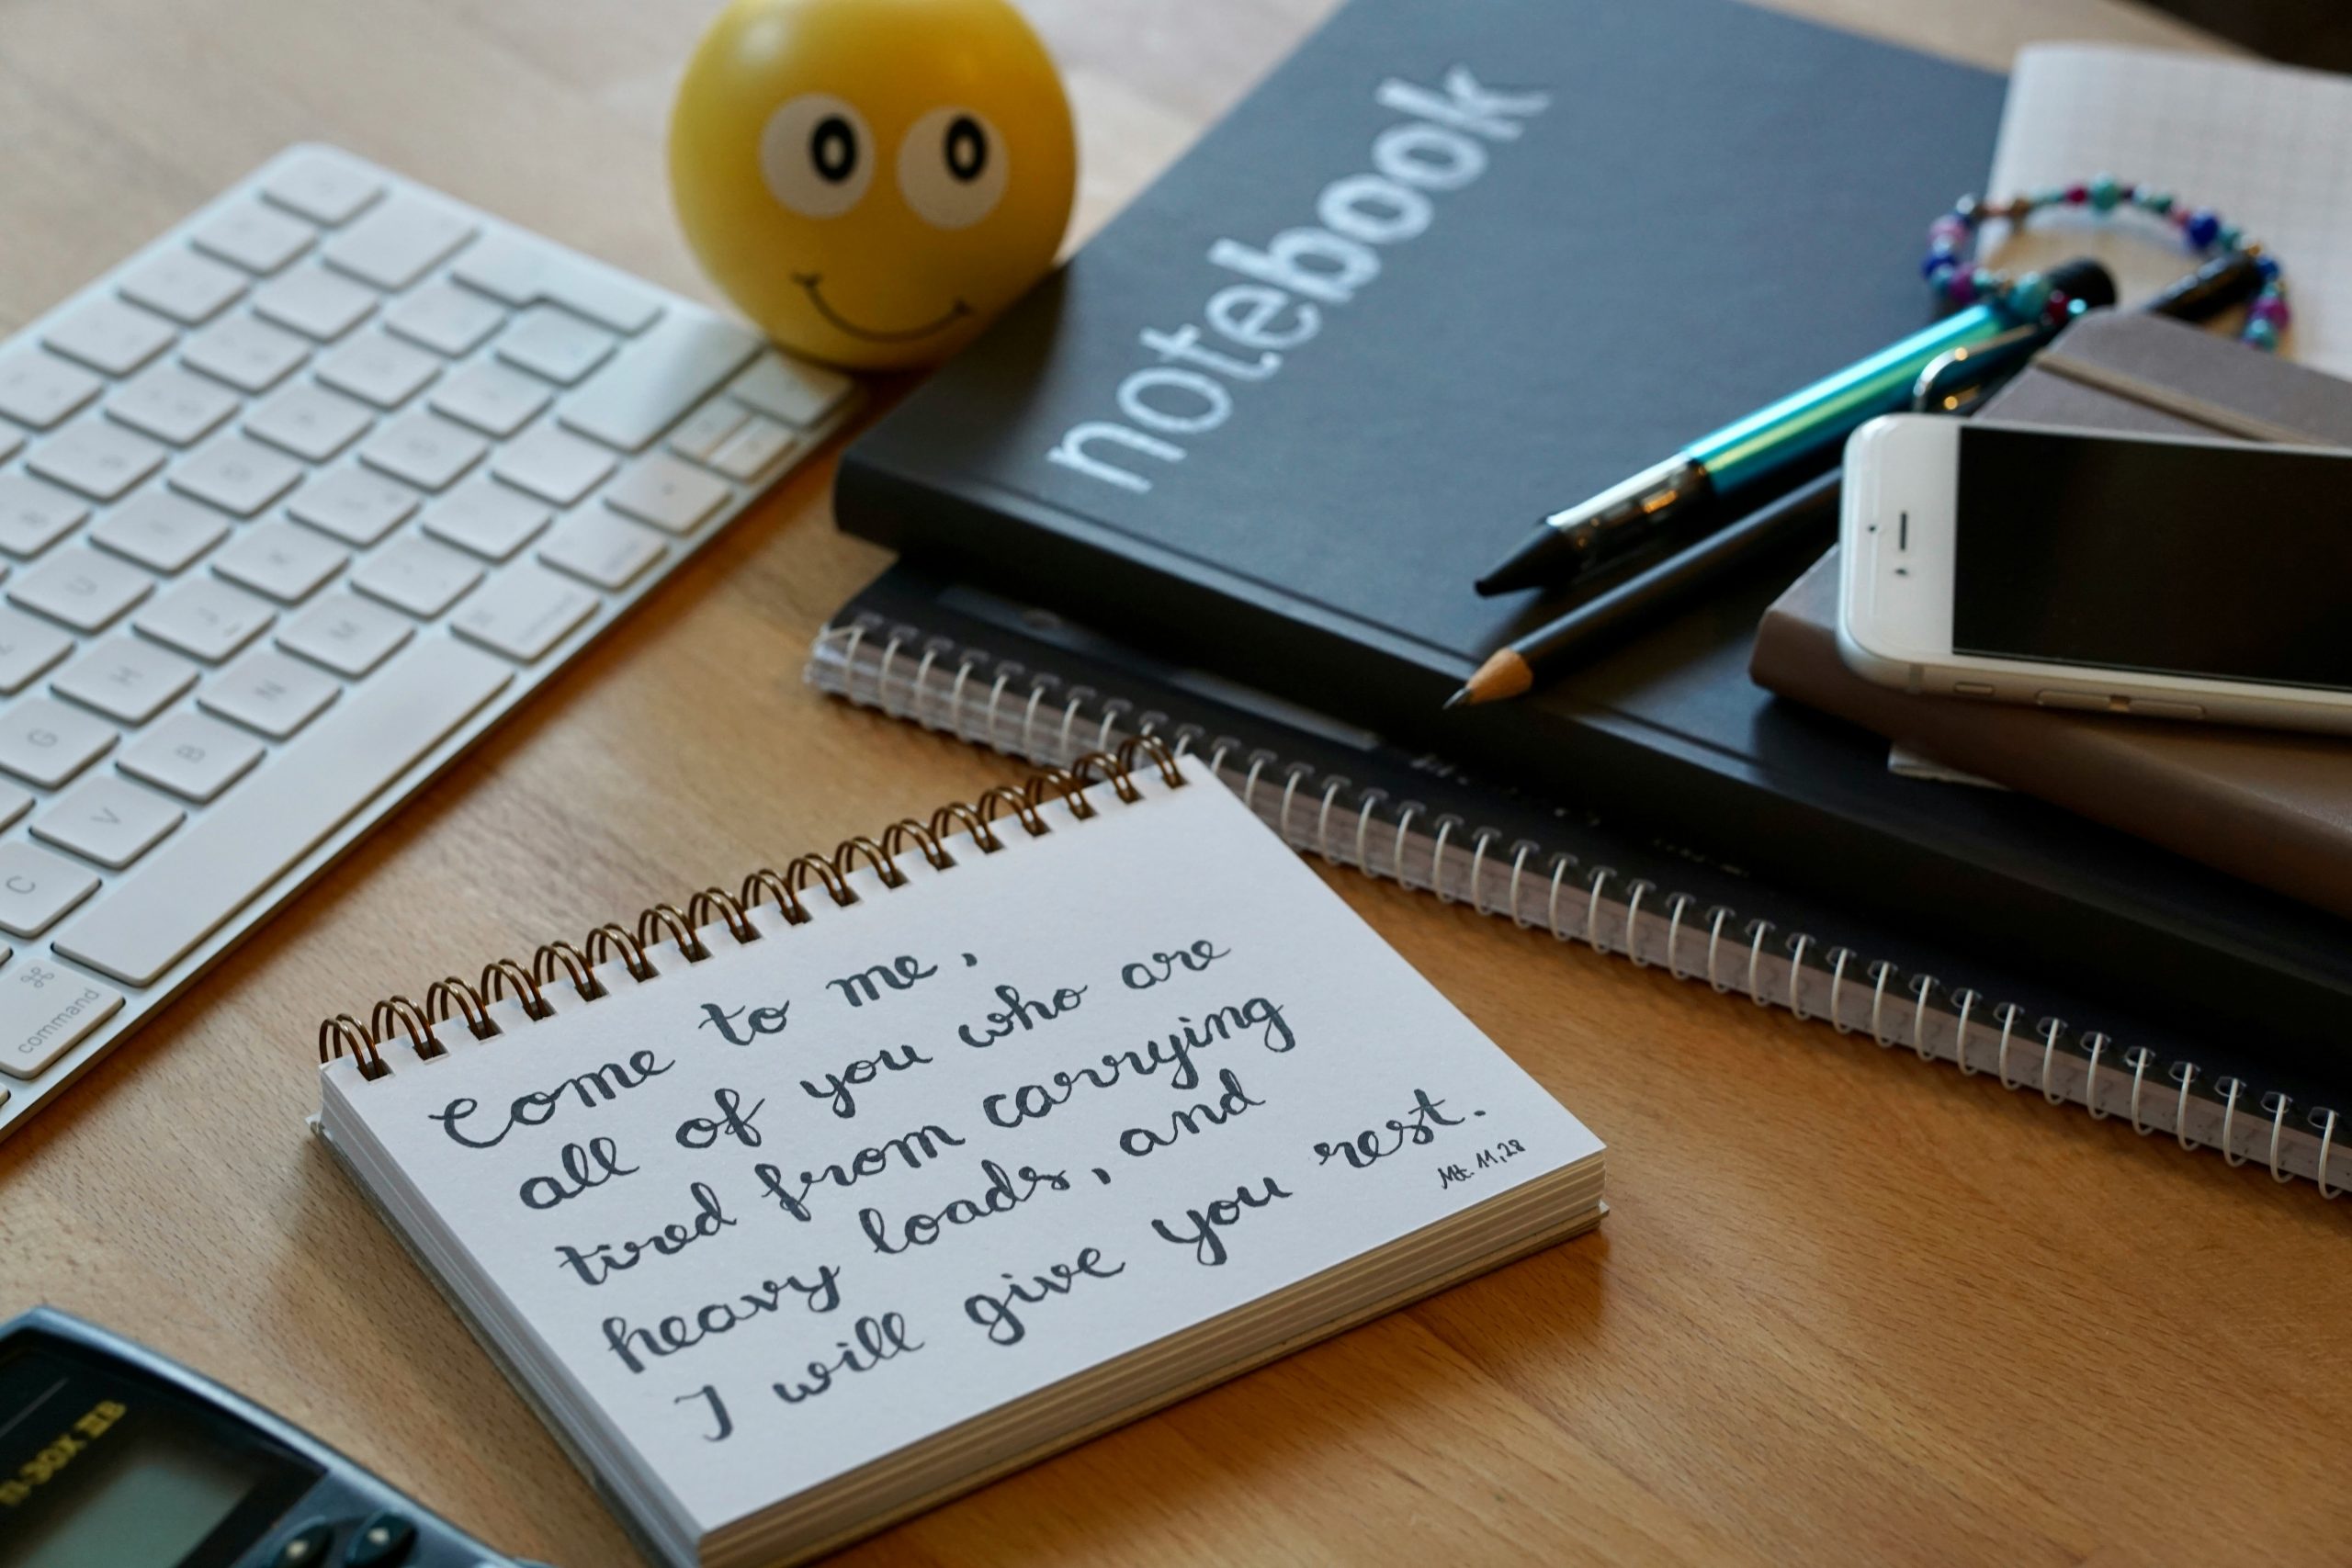 notebook
Come to me,
all of you who are
tired from carrying
heavy loads, and
I will give you rest.
Mt. 11,28
command
G
H
J
U
M
N
B
V
C